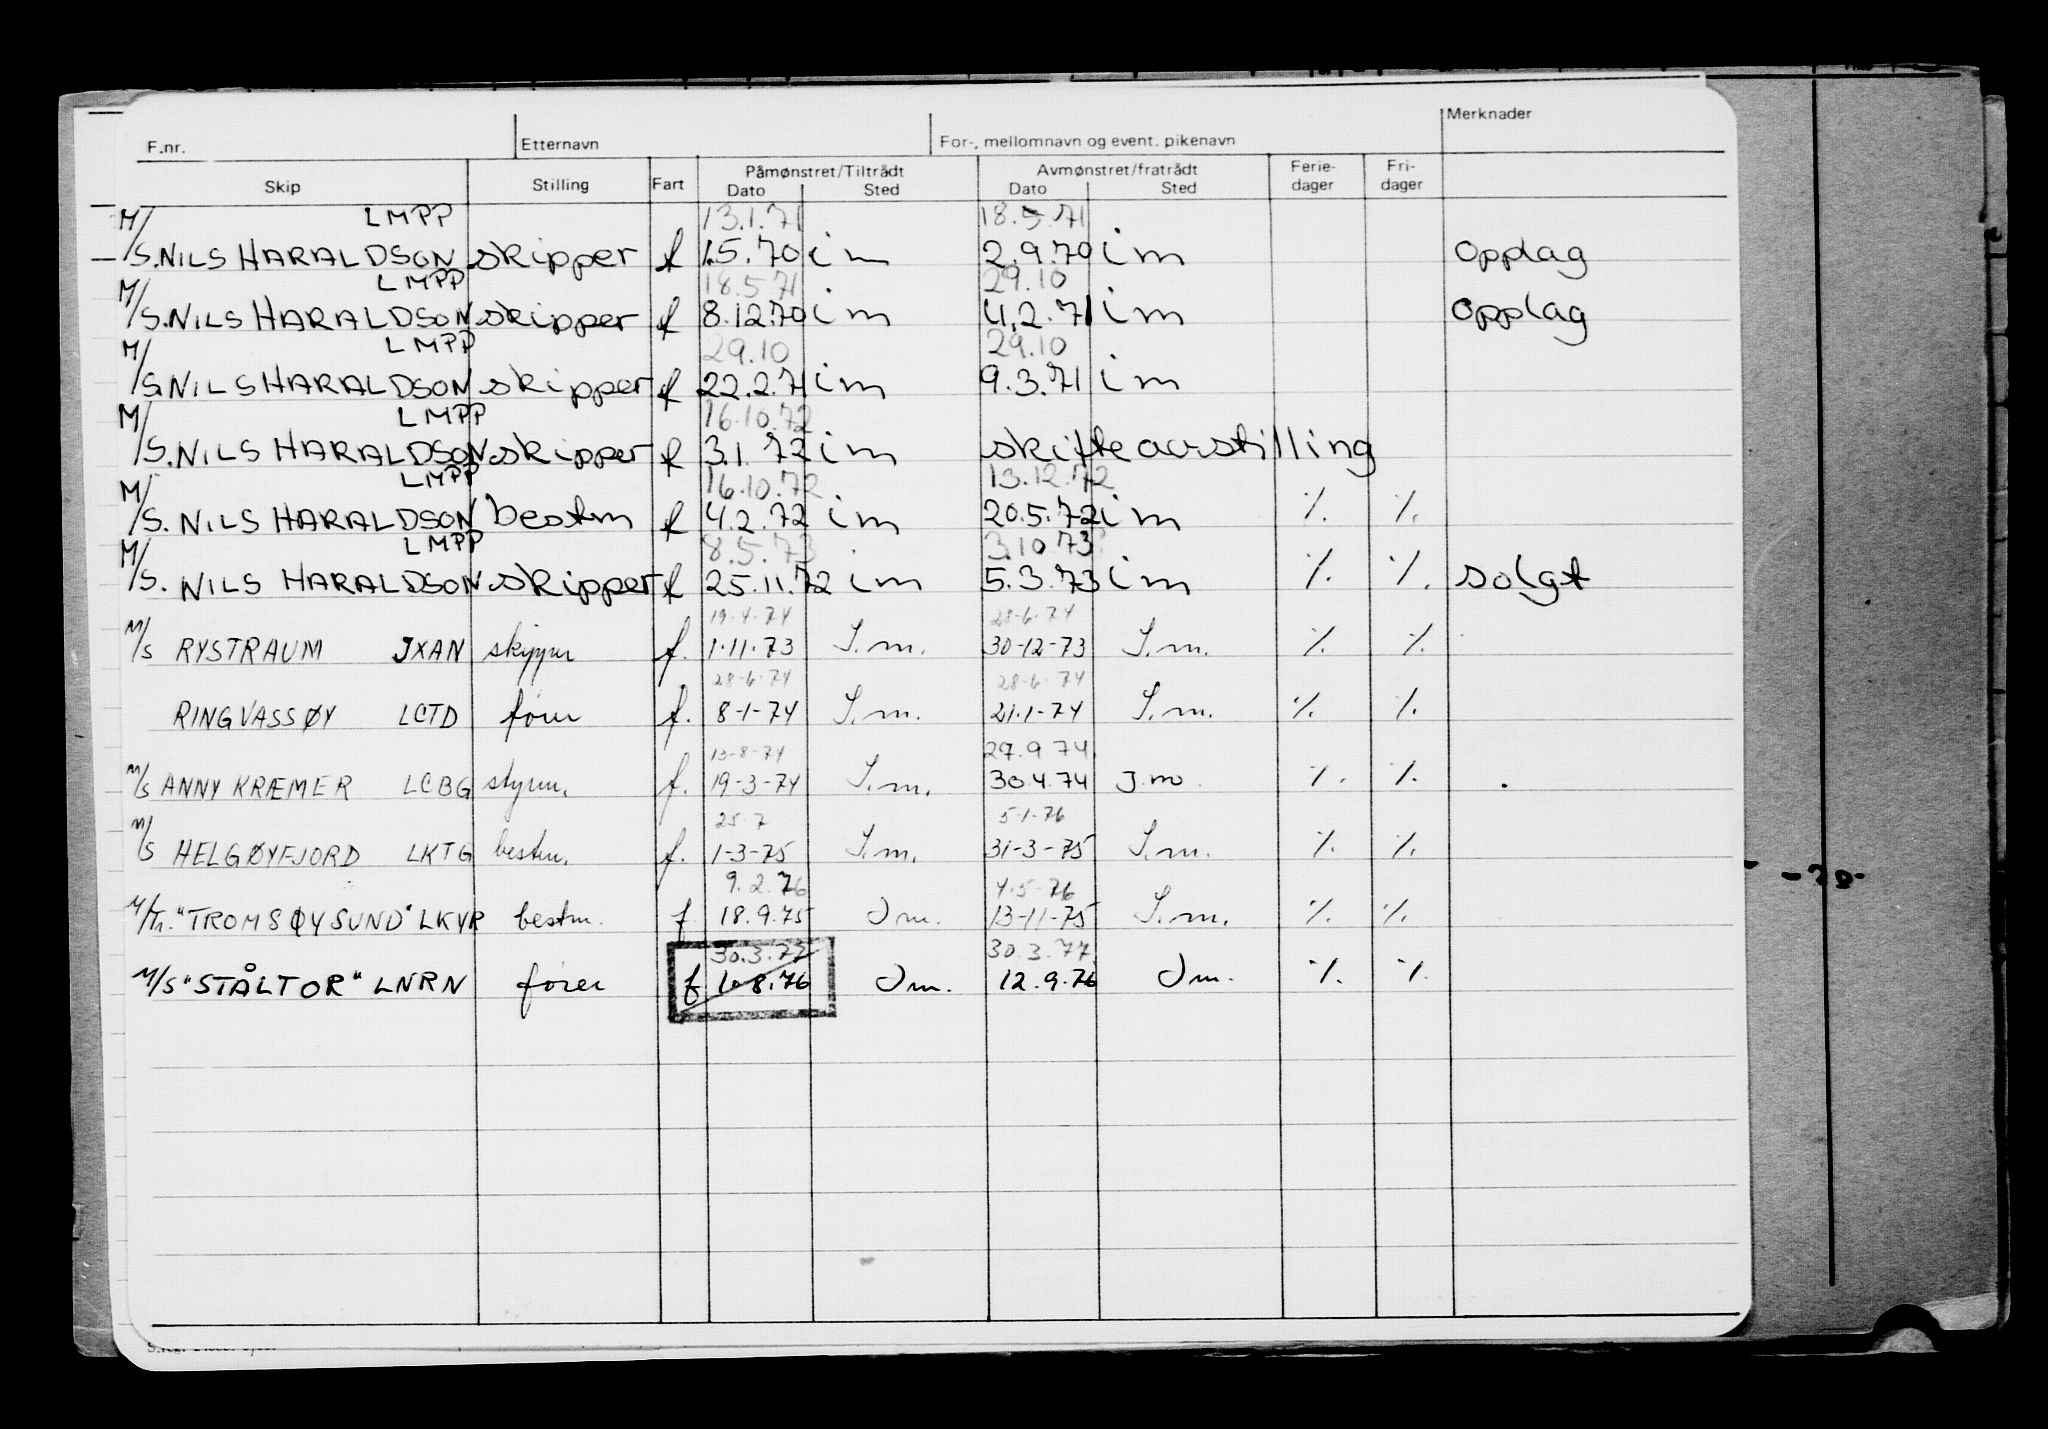 F.nr. Etternavn For-, mellomnavn og event. pikenavn Merknader
Skip Stilling Fart Påmønstret/Tiltrådt Dato Sted Avmønstret/fratrådt Dato Sted Ferie-dager Fri-dager
LMPP 13.1.71 18.5.71
M/S. NILS HARALDSON skipper f 1.5.70 im 2.9.70 im Opplag
LMPP 18.5.71 29.10
M/S. NILS HARALDSON skipper f 8.12.70 im 4.2.71 im Opplag
LMPP 29.10 29.10
M/S. NILS HARALDSON skipper f 22.2.71 im 9.3.71 im
LMPP 16.10.72
M/S. NILS HARALDSON skipper f 3.1.72 im skifte av stilling
LMPP 16.10.72 13.12.72
M/S. NILS HARALDSON bestm f 4.2.72 im 20.5.72 im ./. ./.
LMPP 8.5.73 3.10.73
M/S. NILS HARALDSON skipper f 25.11.72 im 5.3.73 im ./. ./. solgt
19-4-74 28-6-74
M/S RYSTRAUM JXAN skipper f. 1.11.73 I.m. 30-12-73 I.m. ./. ./.
28-6-74 28-6-74
RINGVASSØY LCTD fører f. 8-1-74 I.m. 21.1-74 I.m. ./. ./.
13-8-74 27.9 74.
M/S ANNY KRÆMER LCBG styrm. f. 19-3-74 I.m. 30.4.74 I.m. ./. ./.
25.7 5-1-76
M/S HELGØYFJORD LKTG bestm. f. 1-3-75 I.m. 31-3-75 I.m. ./. ./.
9.2.76 4.5-76
M/Tr. "TROMSØYSUND" LKYR bestm. f 18.9.75 I m. 13-11-75 I.m. ./. ./.
30.3.77 30.3.77.
M/S "STÅLTOR" LNRN fører f 10.8.76 I m. 12.9.76 I m. ./. ./.